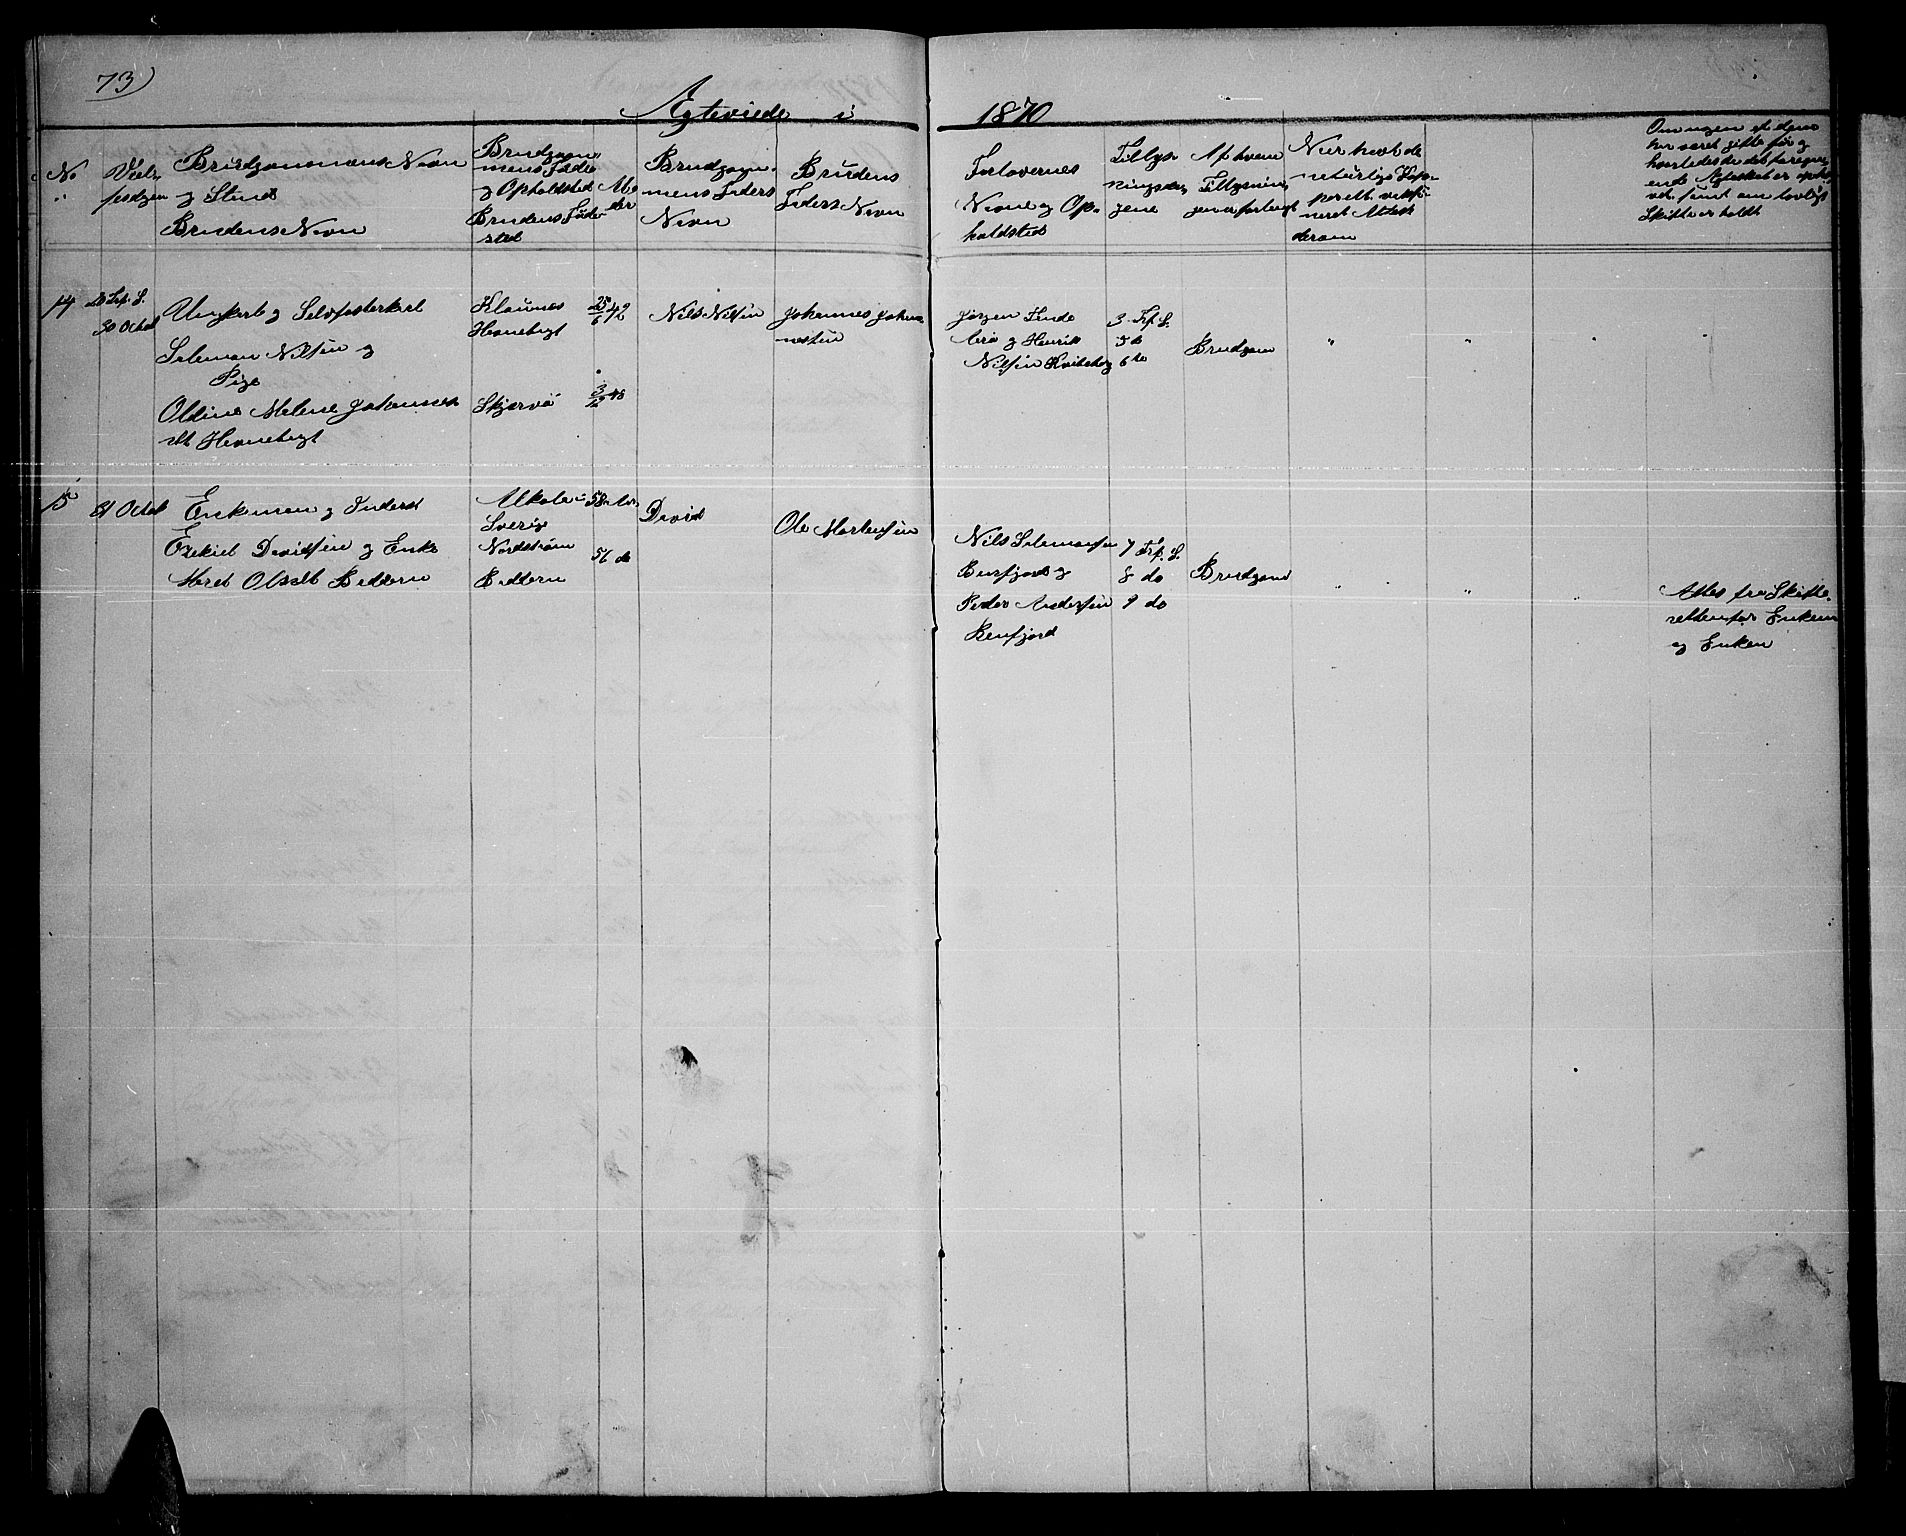 73)
Ægteviede i 1870
No
Viel-
sesdagen
Brudgommens Navn
og Stand
Brudens Navn
Brudgom-
mens Føde
og Opholdsted
Brudens Føde-
sted
Al-
der
Brudgom-
mens Faders
Navn
Brudens
Faders Navn
Forlovernes
Navne og Op-
holdsted
Tillys-
ningsda-
gene
Af hvem
Tillysnin-
gen er forlangt
Naar havt de
naturlige Kop-
per ell. vaksi-
neret Attest
derom
Om nogen af dem
har været gifte før og
hvorledes det foregaa-
ende Ægteskab er ophæ-
vet, samt om lovligt
Skifte er holdt
14
20 Octob
Ungkarl og Selvfosterkarl
Salamon Nilsen og
Pige
Oldine Malene Johannes-
dtt Havnebugt
Klaunes
Havnebugt
Skjervö
25/6 42
3/12 48
Nils Nilsen
Johannes Johan-
nesen
Jørgen
og Henrik
Nilsen
3 Trf. S.
5 do
6 do
Brudgom
" " " "
15
21 Octob
Enkemand og Inderst
Ezekiel Davidsen og Enke
Maret Olsdtt Badderen
Sverig
Nordstrøm
Badderen
58 Aar
56 do
David
Ole Mortensen
Nils Salamonsen
Burfjord og
Peder Andersen
Burfjord
7 Trf. S.
8 do
9 do
Brudgom
" " "
Attest fra Skifte-
retten for Enkem
og Enken